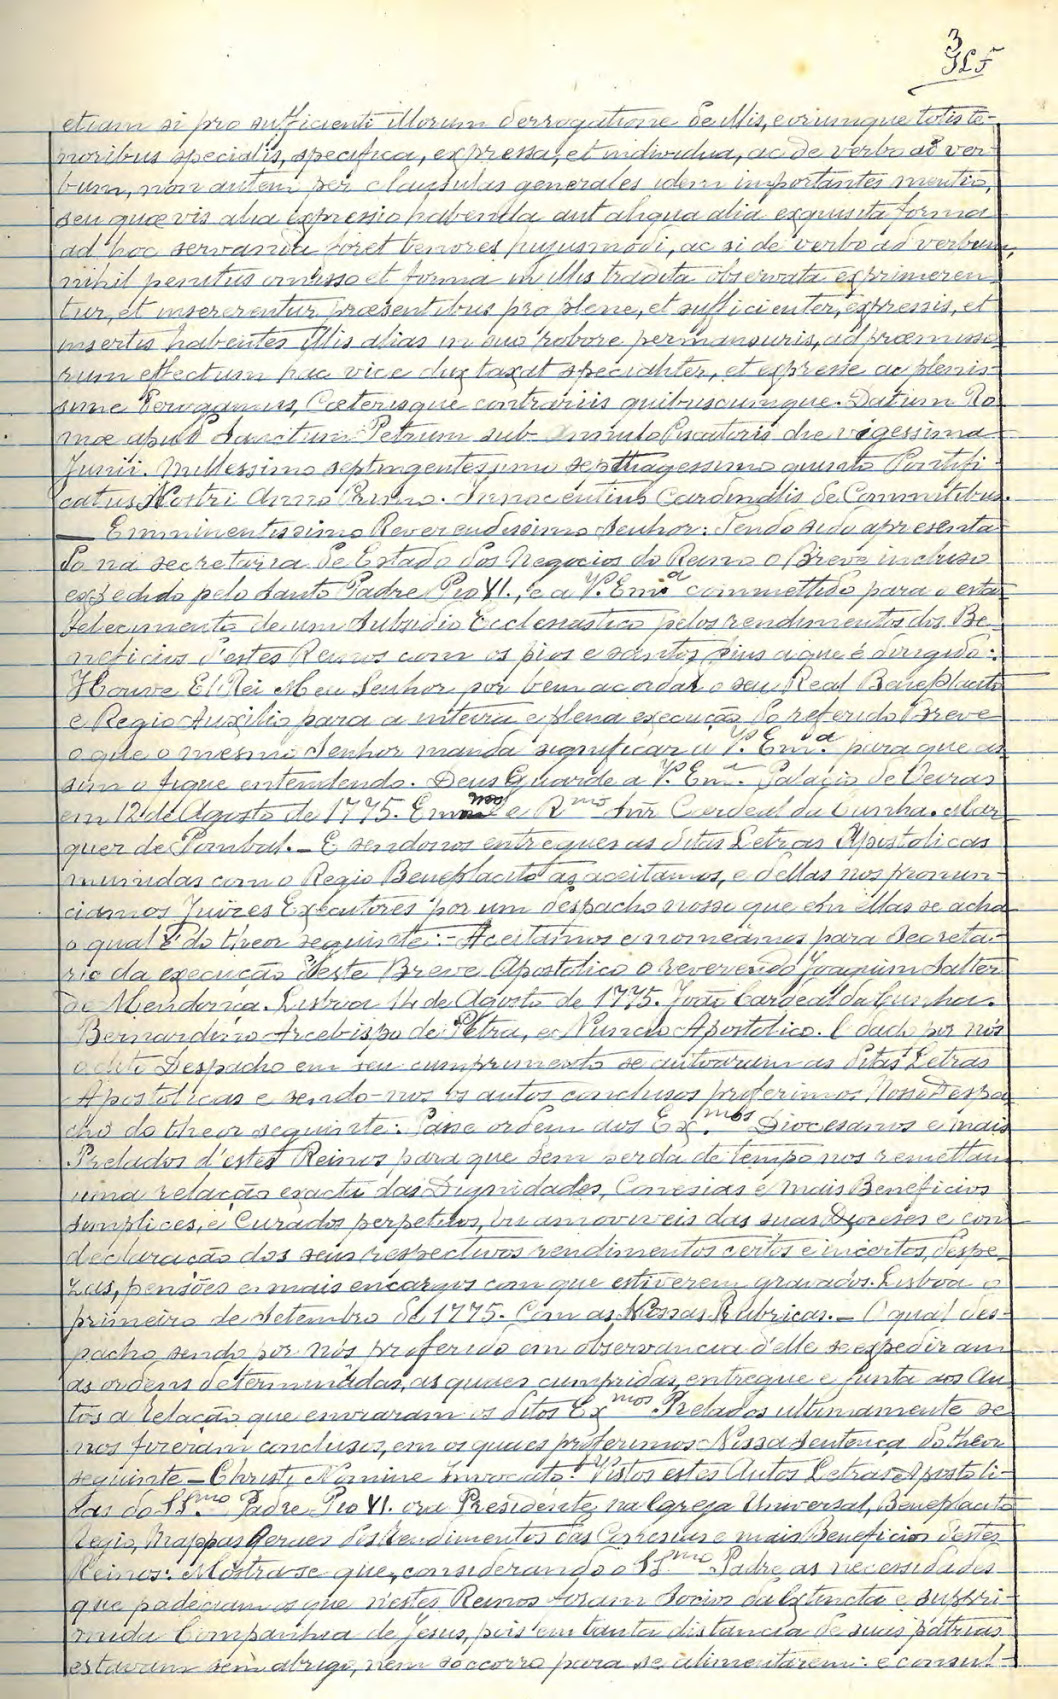 3
JLF
etiam si pro sufficienti illorum derrogatione de illis, eoriumque totis te-
noribus specialis, specifica, expressa, et individua, ac de verbo ad ver-
bum, non autem per clausulas generales idem importantes mentio,
seu quævis alia expressio habenda aut aliqua alia exquisita forma
ad hoc servanda foret tenores hujusmodi, ac si de verbo ad verbum,
nihil penitus omisso et forma in illis tradita observata exprimeren
tur, et insererentur præsentibus pro plene, et sufficienter, expressis, et
insertis habentes illis alias in suo robore permansuris, ad præmisso
rum effectum hac vice dux taxat specialiter, et expresse ac plenis-
sime derogamus, Cæterisque contrariis quibuscumque. Datum Ro
mæ apud Sanctum Petrum sub Annulo Piscatoris die vigessima
Junii. Millessimo septingentessimo septuagessimo quinto Pontifi-
catus Nostri Anno Primo. Innocentius Cardinalis de Commitibus.
— Emminentissimo Reverendissimo Senhor: Sendo sido apresenta-
do na secretaria de Estado dos Negocios do Reino o Breve incluso
expedido pelo Santo Padre Pio VI., e a V. Em.ª commettido para o esta
belecimento de um Subsidio Ecclesiastico pelos rendimentos dos Be-
neficios d'estes Reinos com os pios e santos fins a que é dirigido:
Houve El Rei Meu Senhor por bem acordar o seu Real Beneplacito
e Regio Auxilio para a inteira e plena execução do referido Breve
o que o mesmo Senhor manda significar a V. Em.ª para que as
sim o fique entendendo. Deus Guarde a V. Em.ª Palacio de Oeiras
em 12 de Agosto de 1775. Emmo e Rmo Snr Cardeal da Cunha. Mar
quez de Pombal. — E sendo nos entregues as ditas Letras Apostolicas
munidas com o Regio Beneplacito as aceitamos, e d'ellas nos pronun-
ciamos Juizes Executores por um despacho nosso que em ellas se acha
o qual é do theor seguinte: — Aceitamos e nomeamos para Secreta-
rio da execução d'este Breve Apostolico o reverendo Joaquim Salter
de Mendonça. Lisboa 14 de Agosto de 1775. João Cardeal da Cunha.
Bernardino Arcebispo de Petra, e Nuncio Apostolico. E dado por nós
o dito Despacho em seu cumprimento se autuaram as ditas Letras
Apostolicas e sendo-nos os autos conclusos proferimos Nosso Despa-
cho do theor seguinte: Passe ordem aos Ex.mos Diocesanos e mais
Prelados d'estes Reinos para que sem perda de tempo nos remettam
uma relação exacta das Dignidades, Conesias e mais Beneficios
simplices, e Curados perpetuos, ou amoviveis das suas Dioceses e com
declaração dos seus respectivos rendimentos certos e incertos, despe-
zas, pensões e mais encargos com que estiverem gravados. Lisboa o
primeiro de Setembro de 1775. Com as Nossas Rubricas. — O qual des-
pacho sendo por nós proferido em observancia d'elle se expediram
as ordens determinadas, as quaes cumpridas, entregue e junta aos Au
tos a relação que enviaram os ditos Exmos Prelados ultimamente se
nos fizeram conclusos, em os quaes proferimos Nossa sentença do theor
seguinte — Christi Nomine Invocato. Vistos estes Autos Letras Apostoli-
cas do SS.mo Padre Pio VI. ora Presidente na Igreja Universal, Beneplacito
Regio, Mappas Geraes dos Rendimentos das Conesias e mais Beneficios d'estes
Reinos: Mostra-se que, considerando o SS.mo Padre as necessidades
que padeciam os que n'estes Reinos foram Socios da Extincta e suppri-
mida Companhia de Jesus, pois em tanta distancia de suas patrias
estavam sem abrigo, nem soccorro para se alimentarem: e consul-